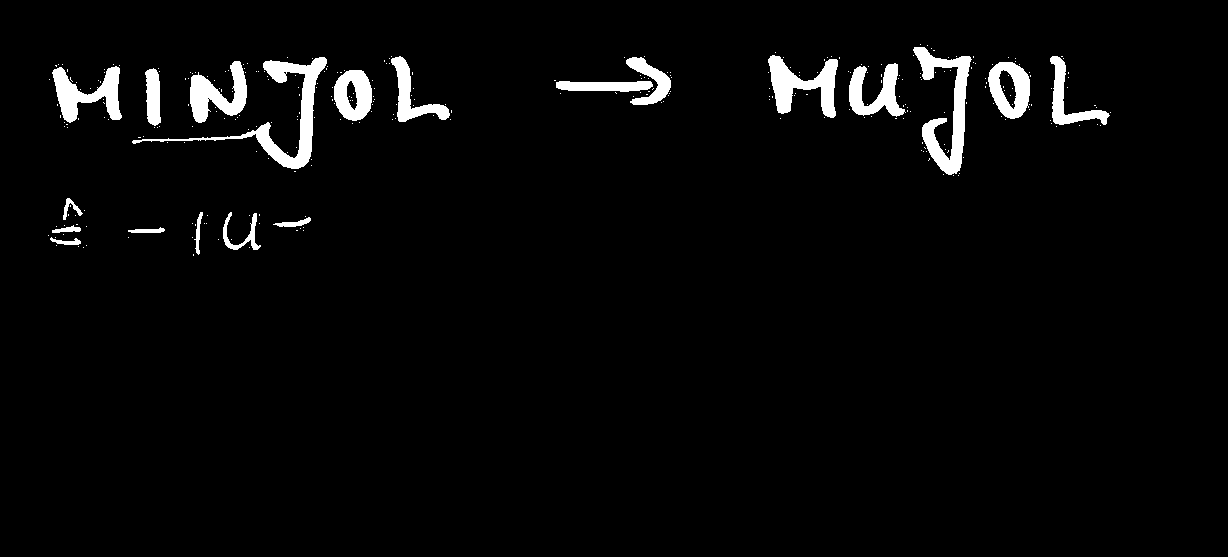 MINJOL → MUJOL
≙ - IU -